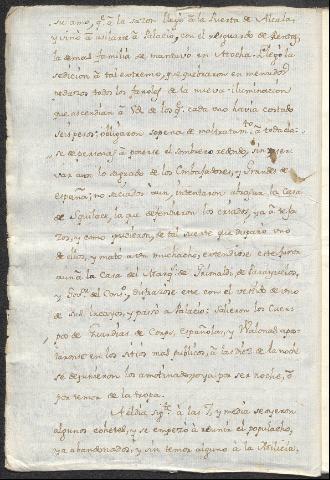 su amo, q.e à la sazon llegò à la Puerta de Alcala,
y vino à avisarle à Palacio, con el resguardo de Reven,
la demas familia se mantuvo en Atocha. Llegò la
sedicion à tal extremo, que quebraron en menudos
pedazos todos los faroles de la nueva iluminacion
que ascendian à de los q.e cada uno havia costado
seis pesos: obligaron sopena de maltratam.to à toda cla-
se de personas à ponerse el sombrero redondo, sin
aun lo sagrado de los Embajadores, y Grandes de
España; no saciados aun, intentaron abrasar la Casa
de Squilace, la que defendieron los criados, ya à teja
zos, y como pudieron, de tal suerte que disparo uno
de ellos, y matò à un muchacho; extendiose este furor
aun à la Casa del Marq.s de Grimaldi, de Sarachelos,
y Gov.or del Cons.o, disfrazose este con el vestido de uno
de sus Lacayos, y pasò à Palacio: salieron los Cuer-
pos de Guardias de Corps, Españolas, y Walonas apos-
taronse en los sitios mas publicos, à las diez de la noche
se dejuvieron los amotinados, ò ya por ser noche, ò
por temor de la tropa.
Al dia sig.te à las 7 y media se oyeron
algunos cohetes, y se empezò à reunir el populacho,
ya abandonados, y sin temor alguno à la Milicia,